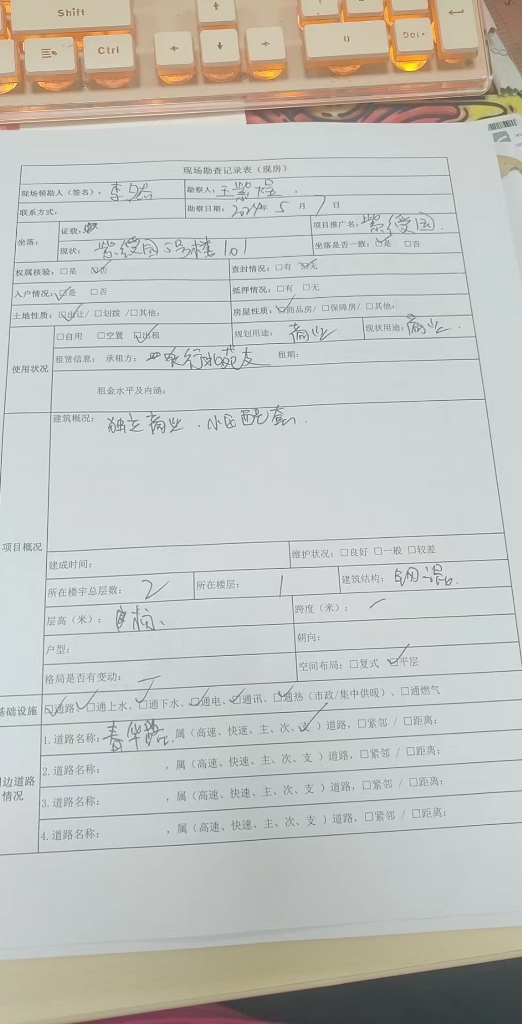 Shift
Ctrl
0
Del
现场勘查记录表（现房）
现场领勘人（签名）： 李 勘察人： 王
联系方式： 勘察日期： 2024年 5 月 7 日
坐落： 证载： 项目推广名： 紫绶园
现状： 紫绶园5号楼101 坐落是否一致：☑是 □否
权属核验：□是 ☑否 查封情况：□有 ☑无
入户情况：☑是 □否 抵押情况：□有 □无
土地性质：☑出让/□划拨/□其他： 房屋性质：☑商品房/□保障房/□其他：
使用状况 □自用 □空置 ☑出租 规划用途： 商业 现状用途： 商业
租赁信息： 承租方： 租期：
租金水平及内涵：
项目概况 建筑概况： 独立商业、小区配套
建成时间： 维护状况：□良好 □一般 □较差
所在楼宇总层数： 2 所在楼层： 1 建筑结构： 钢混
层高（米）： 跨度（米）： /
户型： 朝向：
格局是否有变动： 空间布局：□复式 ☑平层
基础设施 ☑通路、☑通上水、☑通下水、☑通电、☑通讯、☑通热（市政/集中供暖）、□通燃气
边道路情况 1.道路名称： 春华路 ，属（高速、快速、主、次、支✓）道路，□紧邻 / □距离：
2.道路名称： ，属（高速、快速、主、次、支 ）道路，□紧邻 / □距离：
3.道路名称： ，属（高速、快速、主、次、支 ）道路，□紧邻 / □距离：
4.道路名称： ，属（高速、快速、主、次、支 ）道路，□紧邻 / □距离：